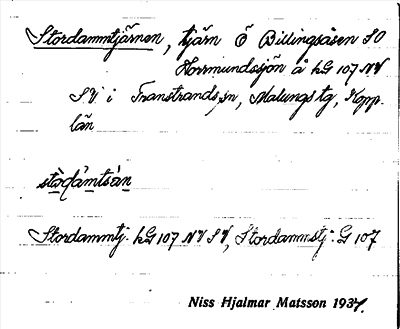 Stordammtjärnen, tjärn Ö Billingsåsen SO
Horrmundssjön å kG 107 NV
SV i Transtrands sn, Malungs tg, Kopp.
län
stòdàmtsán
Stordammtj. kG 107 NV SV, Stordammstj. G 107
Niss Hjalmar Matsson 1937.